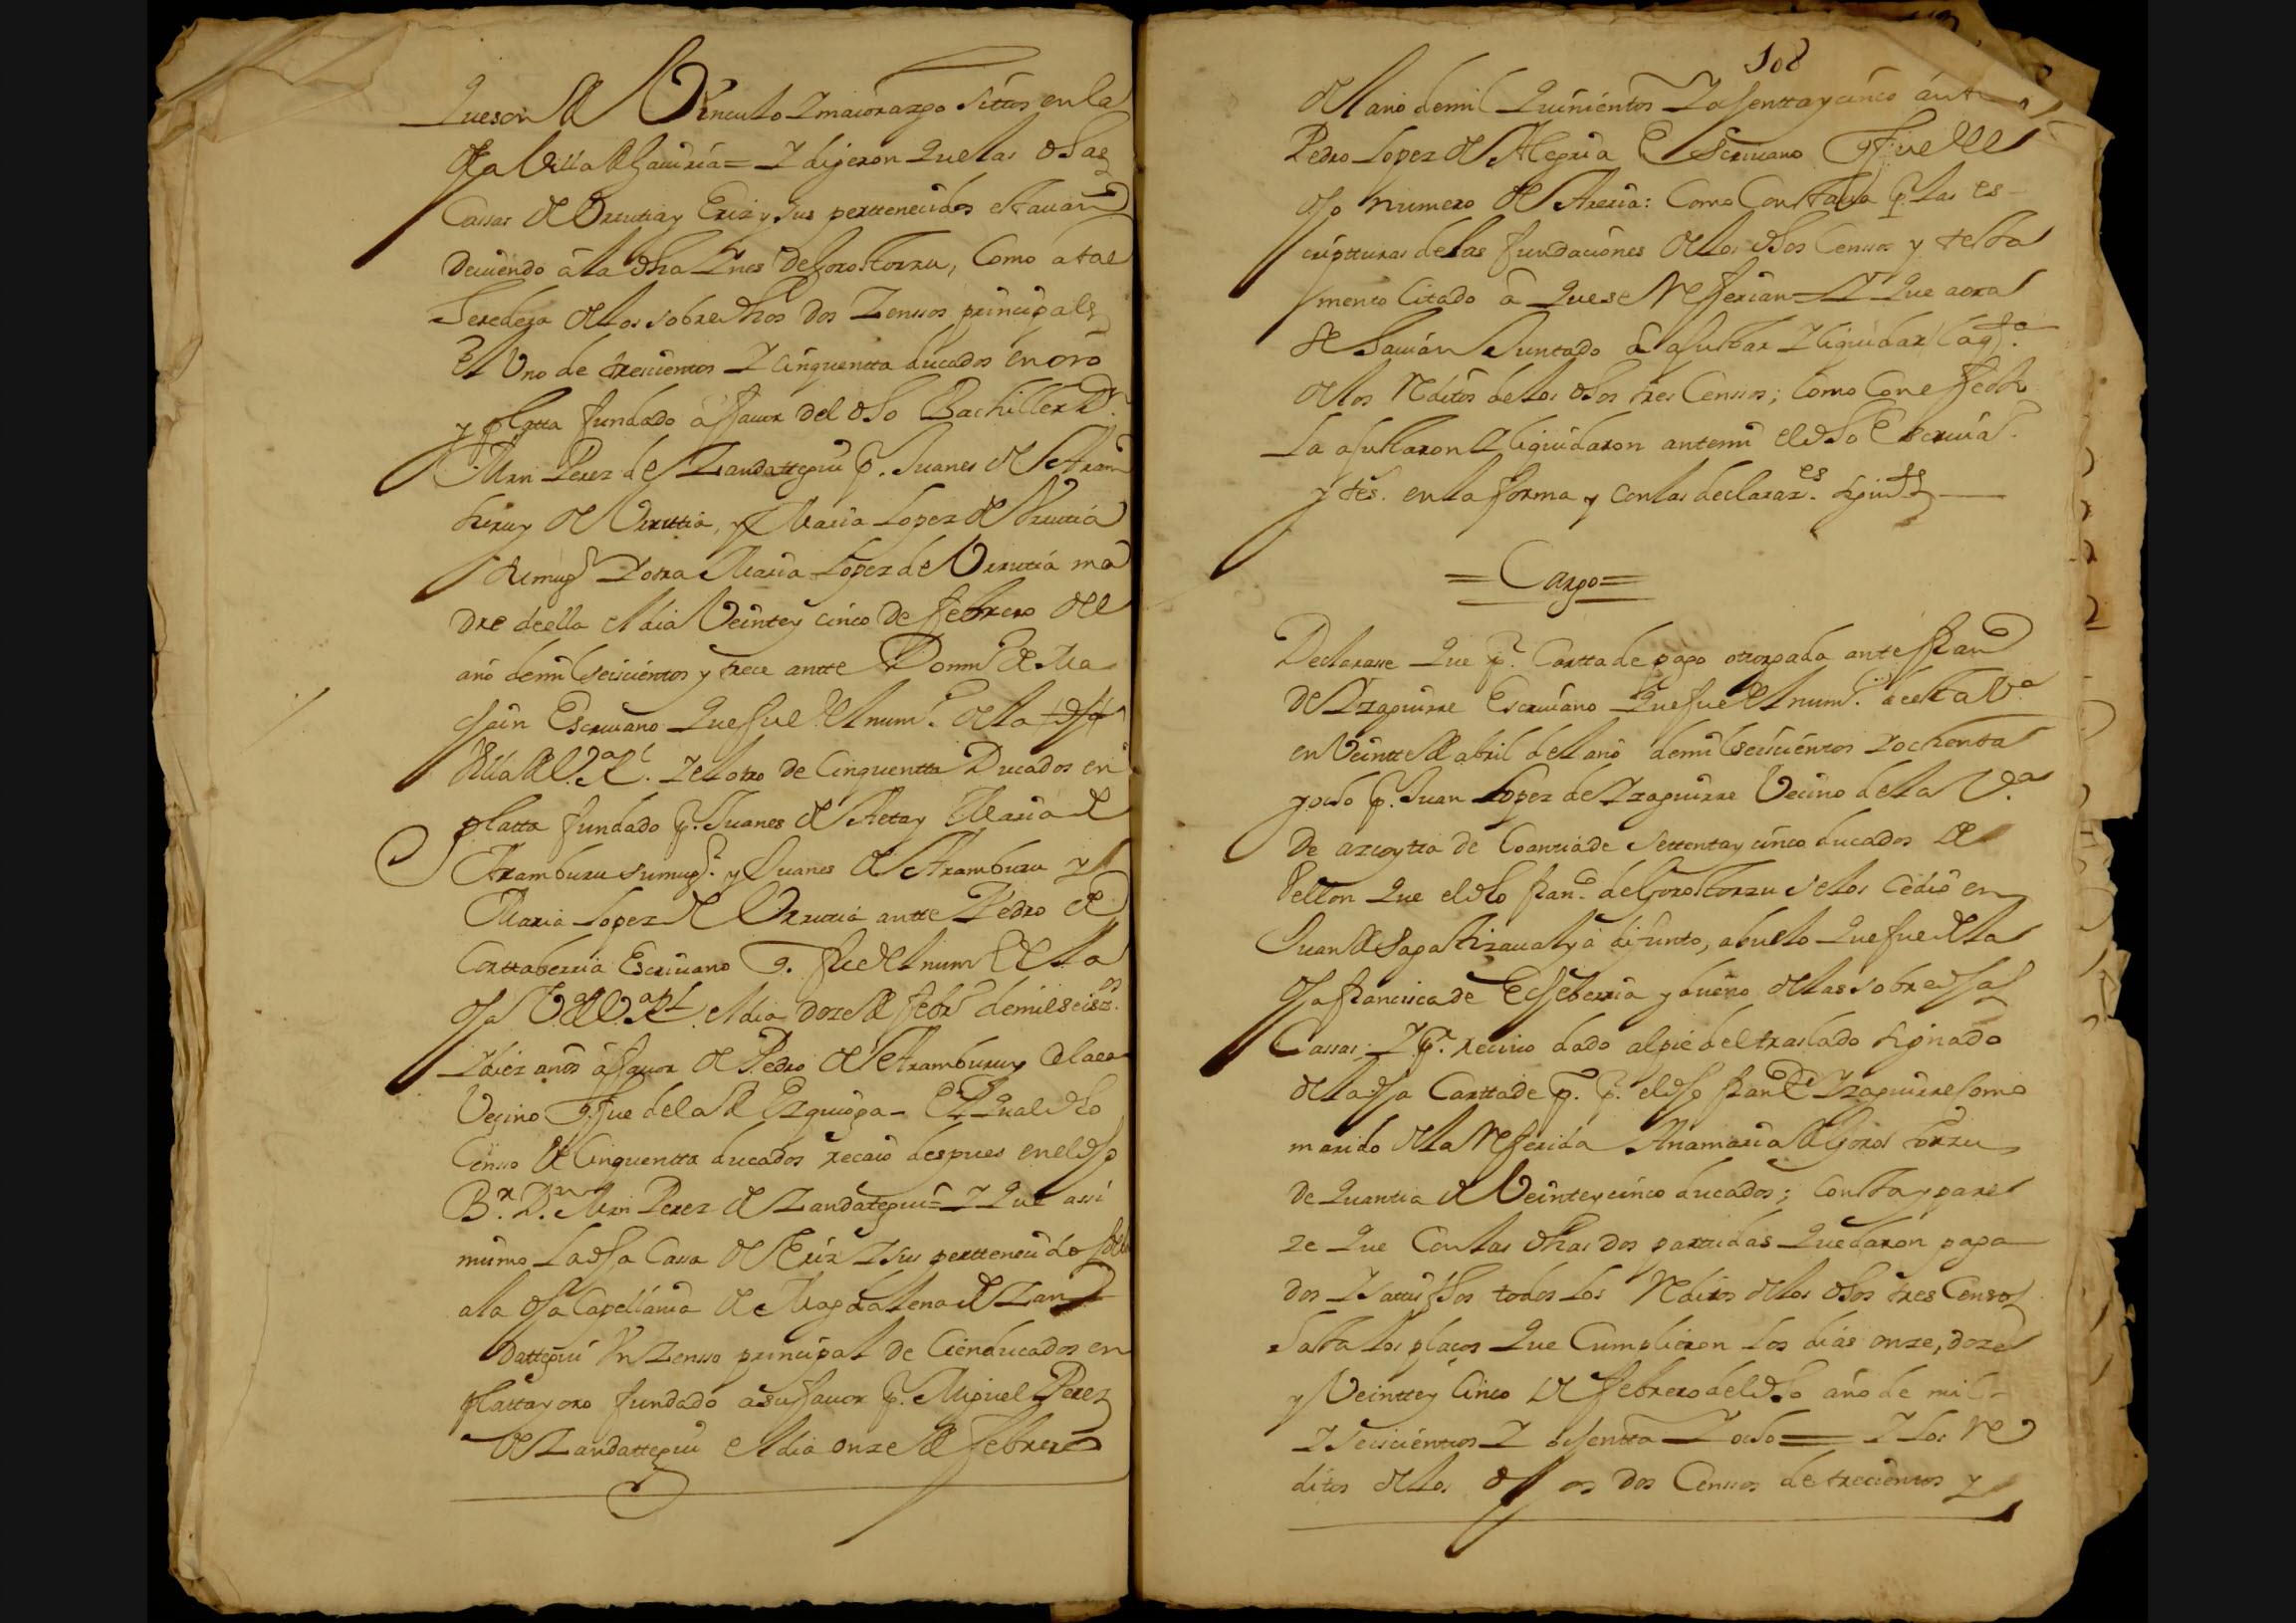 Que son de Vinculo y maiorazgo sittos en la
dha Villa de Gauiria = Y dijeron que las dhas
Cassas de Vrrutia y Eriz y sus perttenecidos estauan
deuiendo â la dha Ynes de Gorostorzu, Como a tal
heredera de los sobredhos dos Zenssos principales
el Vno de trescientos y cinquentta ducados en oro
y platta fundado â fauor del dho Bachiller Dn.
Mrn Perez de Zandattegui pr. Juanes de Aram
buru y de Vrrutia, y Maria Lopez de Vrrutia
su mugr. y otra Maria Lopez de Vrrutia ma
dre de ella el dia Veinte y cinco de febrero del
año de mil seiscientos y trece antte Domo. de
Escriuano que fue del numo. de la dha
Villa de V.a R.l. y el otro de Cinquentta Ducados en
platta fundado pr. Juanes de Aeta y Maria de
Aramburu su mugr. y Juanes de Aramburu y
Maria Lopez de Vrrutia antte Pedro de
Corttaberria Escriuano q. fue del num. de la
dha V.a de V.a R.l el dia doze de febro. de mil seisz.os
y diez años â fauor de Pedro de Aramburu y
Vezino q. fue de la de Ezquioga - El qual dho
Censso de Cinquentta ducados recaio despues en el dho
Br. Dn. Mrn Perez de Zandategui = Y que assi
mismo la dha Cassa de Eriz y sus perttenecidos
a la dha Capellania de Magdalena de Zan
dattegui Vn Zensso principal de Cien ducados en
platta y oro fundado a su fauor pr. Miguel Perez
de Zandattegui el dia onze de febrero
108
del año de mil quinientos y ochenta y cinco ante
Pedro Lopez de Alegria Escriuano q fue del
dho numero de Areria: Como Constaua pr. las es-
cripturas de las fundaciones de los dhos Censsos y testa
mento Citado â que se Referian = Y que aora
se hauian Juntado â ajustar y liquidar la qta.
de los Reditos de los dhos tres Censsos; Como Con efecto
la ajustaron y liquidaron ante mi el dho Escriuo.
y tes. en la forma y con las declaraz.es siguites.
= Cargo =
Declarase que pr. Cartta de pago otorgada ante fran.co
de Yzaguirre Escriuano que fue del num. de esta V.a
en Veintte de abril del año de mil seiscientos y ochenta
y ocho pr. Juan Lopez de Yzaguirre Vecino de la V.a
de azcoytia de Coantia de settenta y cinco ducados de
Vellon que el dho fran.co de Gorostorzu se los cedio en
Juan de Sagastizaual ya difunto, abuelo que fue de la
dha francisca de Echeberria y dueño de las sobre dhas
Cassas: y pr. reciuo dado al pie del traslado signado
de la dha Cartta de p. pr. el dho fran.co de Yzaguirre Como
marido de la Referida Ana maria de Gorostorzu
de quantia de Veinte y cinco ducados; consta y pare
ze que con las dhas dos partidas quedaron paga
dos y sattisfhos todos los Reditos de los dhos tres Censos
hasta los plaços que Cumplieron los dias onze, doze
y Veintte y Cinco de febrero del dho año de mil
y seiscientos y ochentta y ocho = y los Re
ditos de los dhos dos Censsos de trecientos y